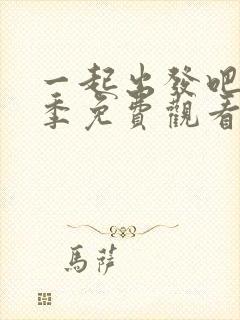 一起出發吧
季免費觀看
馬薩